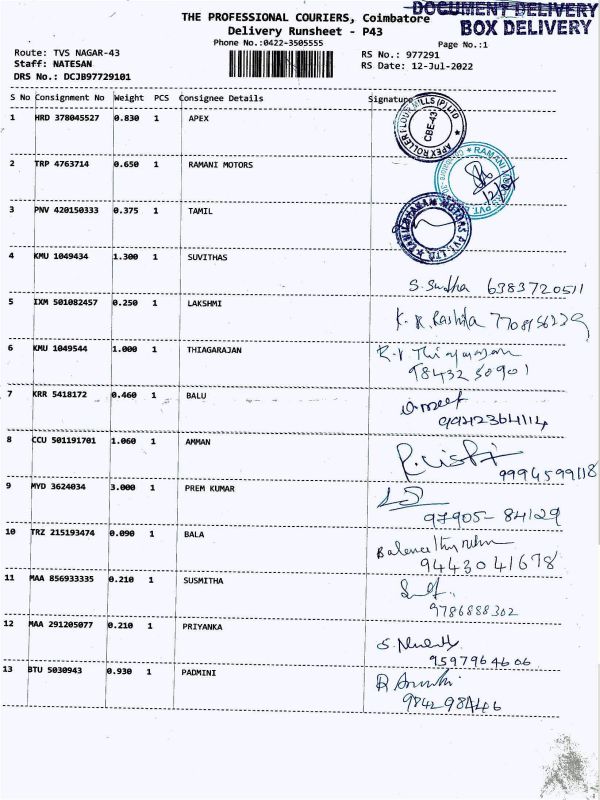 DOCUMENT DELIVERY
BOX DELIVERY
THE PROFESSIONAL COURIERS, Coimbatore
Delivery Runsheet - P43
Phone No.:0422-3505555
Page No.:1
Route: TVS NAGAR-43
RS No.: 977291
Staff: NATESAN
RS Date: 12-Jul-2022
DRS No.: DCJB97729101
S No Consignment No Weight PCS Consignee Details Signature
1 HRD 378045527 0.830 1 APEX
APEX ROLLER FLOUR MILLS (P) LTD CBE-43
2 TRP 4763714 0.650 1 RAMANI MOTORS
RAMANI
3 PNV 420150333 0.375 1 TAMIL
MOTORS PVT. LTD.
4 KMU 1049434 1.300 1 SUVITHAS
S. Swatha 6383720511
5 IXM 501082457 0.250 1 LAKSHMI
K. R. Rashita
6 KMU 1049544 1.000 1 THIAGARAJAN
98432 30901
7 KRR 5418172 0.460 1 BALU
8 CCU 501191701 1.060 1 AMMAN
9994599118
9 MYD 3624034 3.000 1 PREM KUMAR
97905-84129
10 TRZ 215193474 0.090 1 BALA
9443041678
11 MAA 856933335 0.210 1 SUSMITHA
9786888302
12 MAA 291205077 0.210 1 PRIYANKA
9597964606
13 BTU 5030943 0.930 1 PADMINI